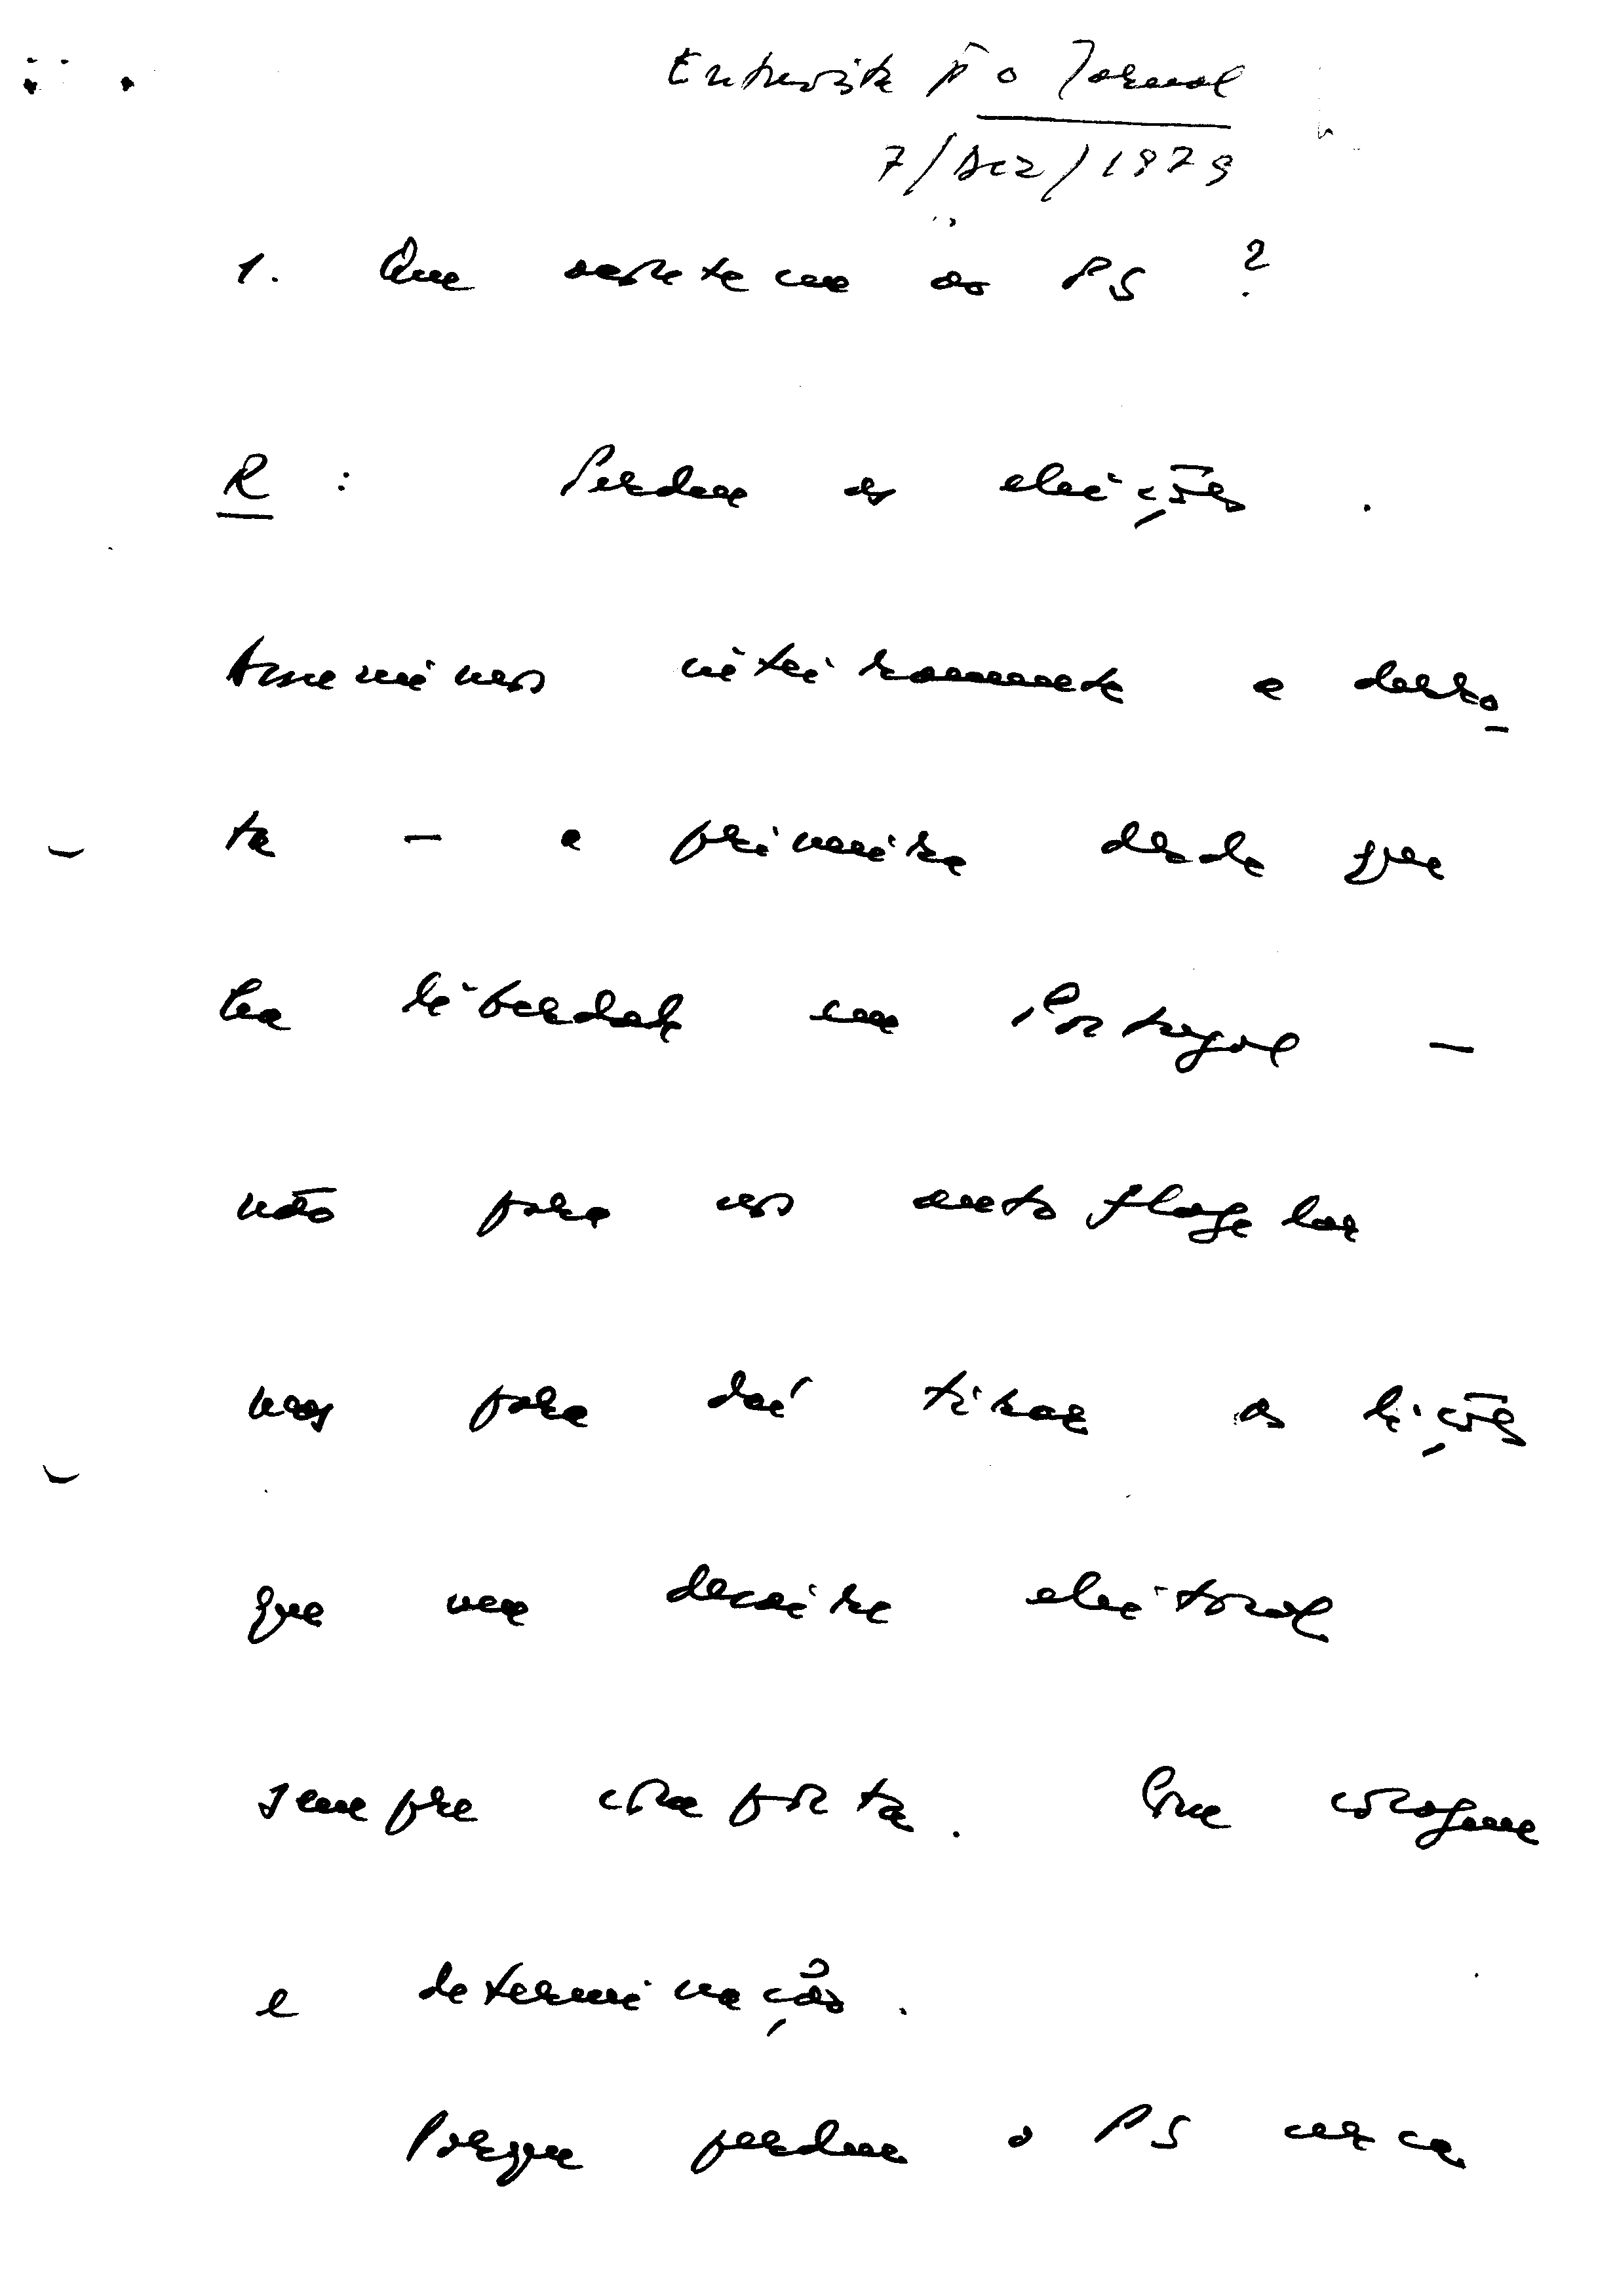 Entrevista p.ª o Jornal
7/Dez/1979
1. Que aconteceu ao PS ?
R : Perdeu as eleições .
Assumimos inteiramente a derro
ta — a primeira desde que
há liberdade em Portugal —
não para nos auto flagelar
mas para daí tirar as lições
que um desaire eleitoral
sempre comporta . Com coragem
e determinação .
Porque perdeu o PS cerca